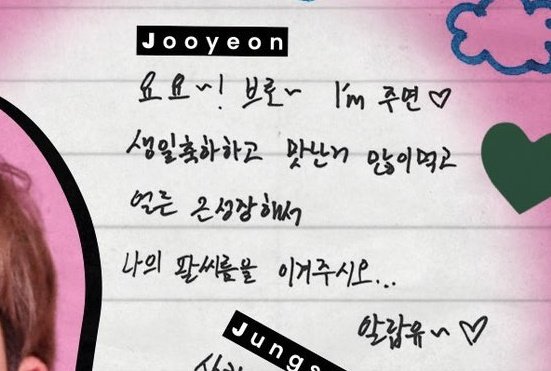 Jooyeon
요요~! 브로~ I'm 주연♡
생일축하하고 맛난거 많이먹고
얼른 근성장해서
나의 팔씨름을 이겨주시오...
알랍유~♡
Jungs